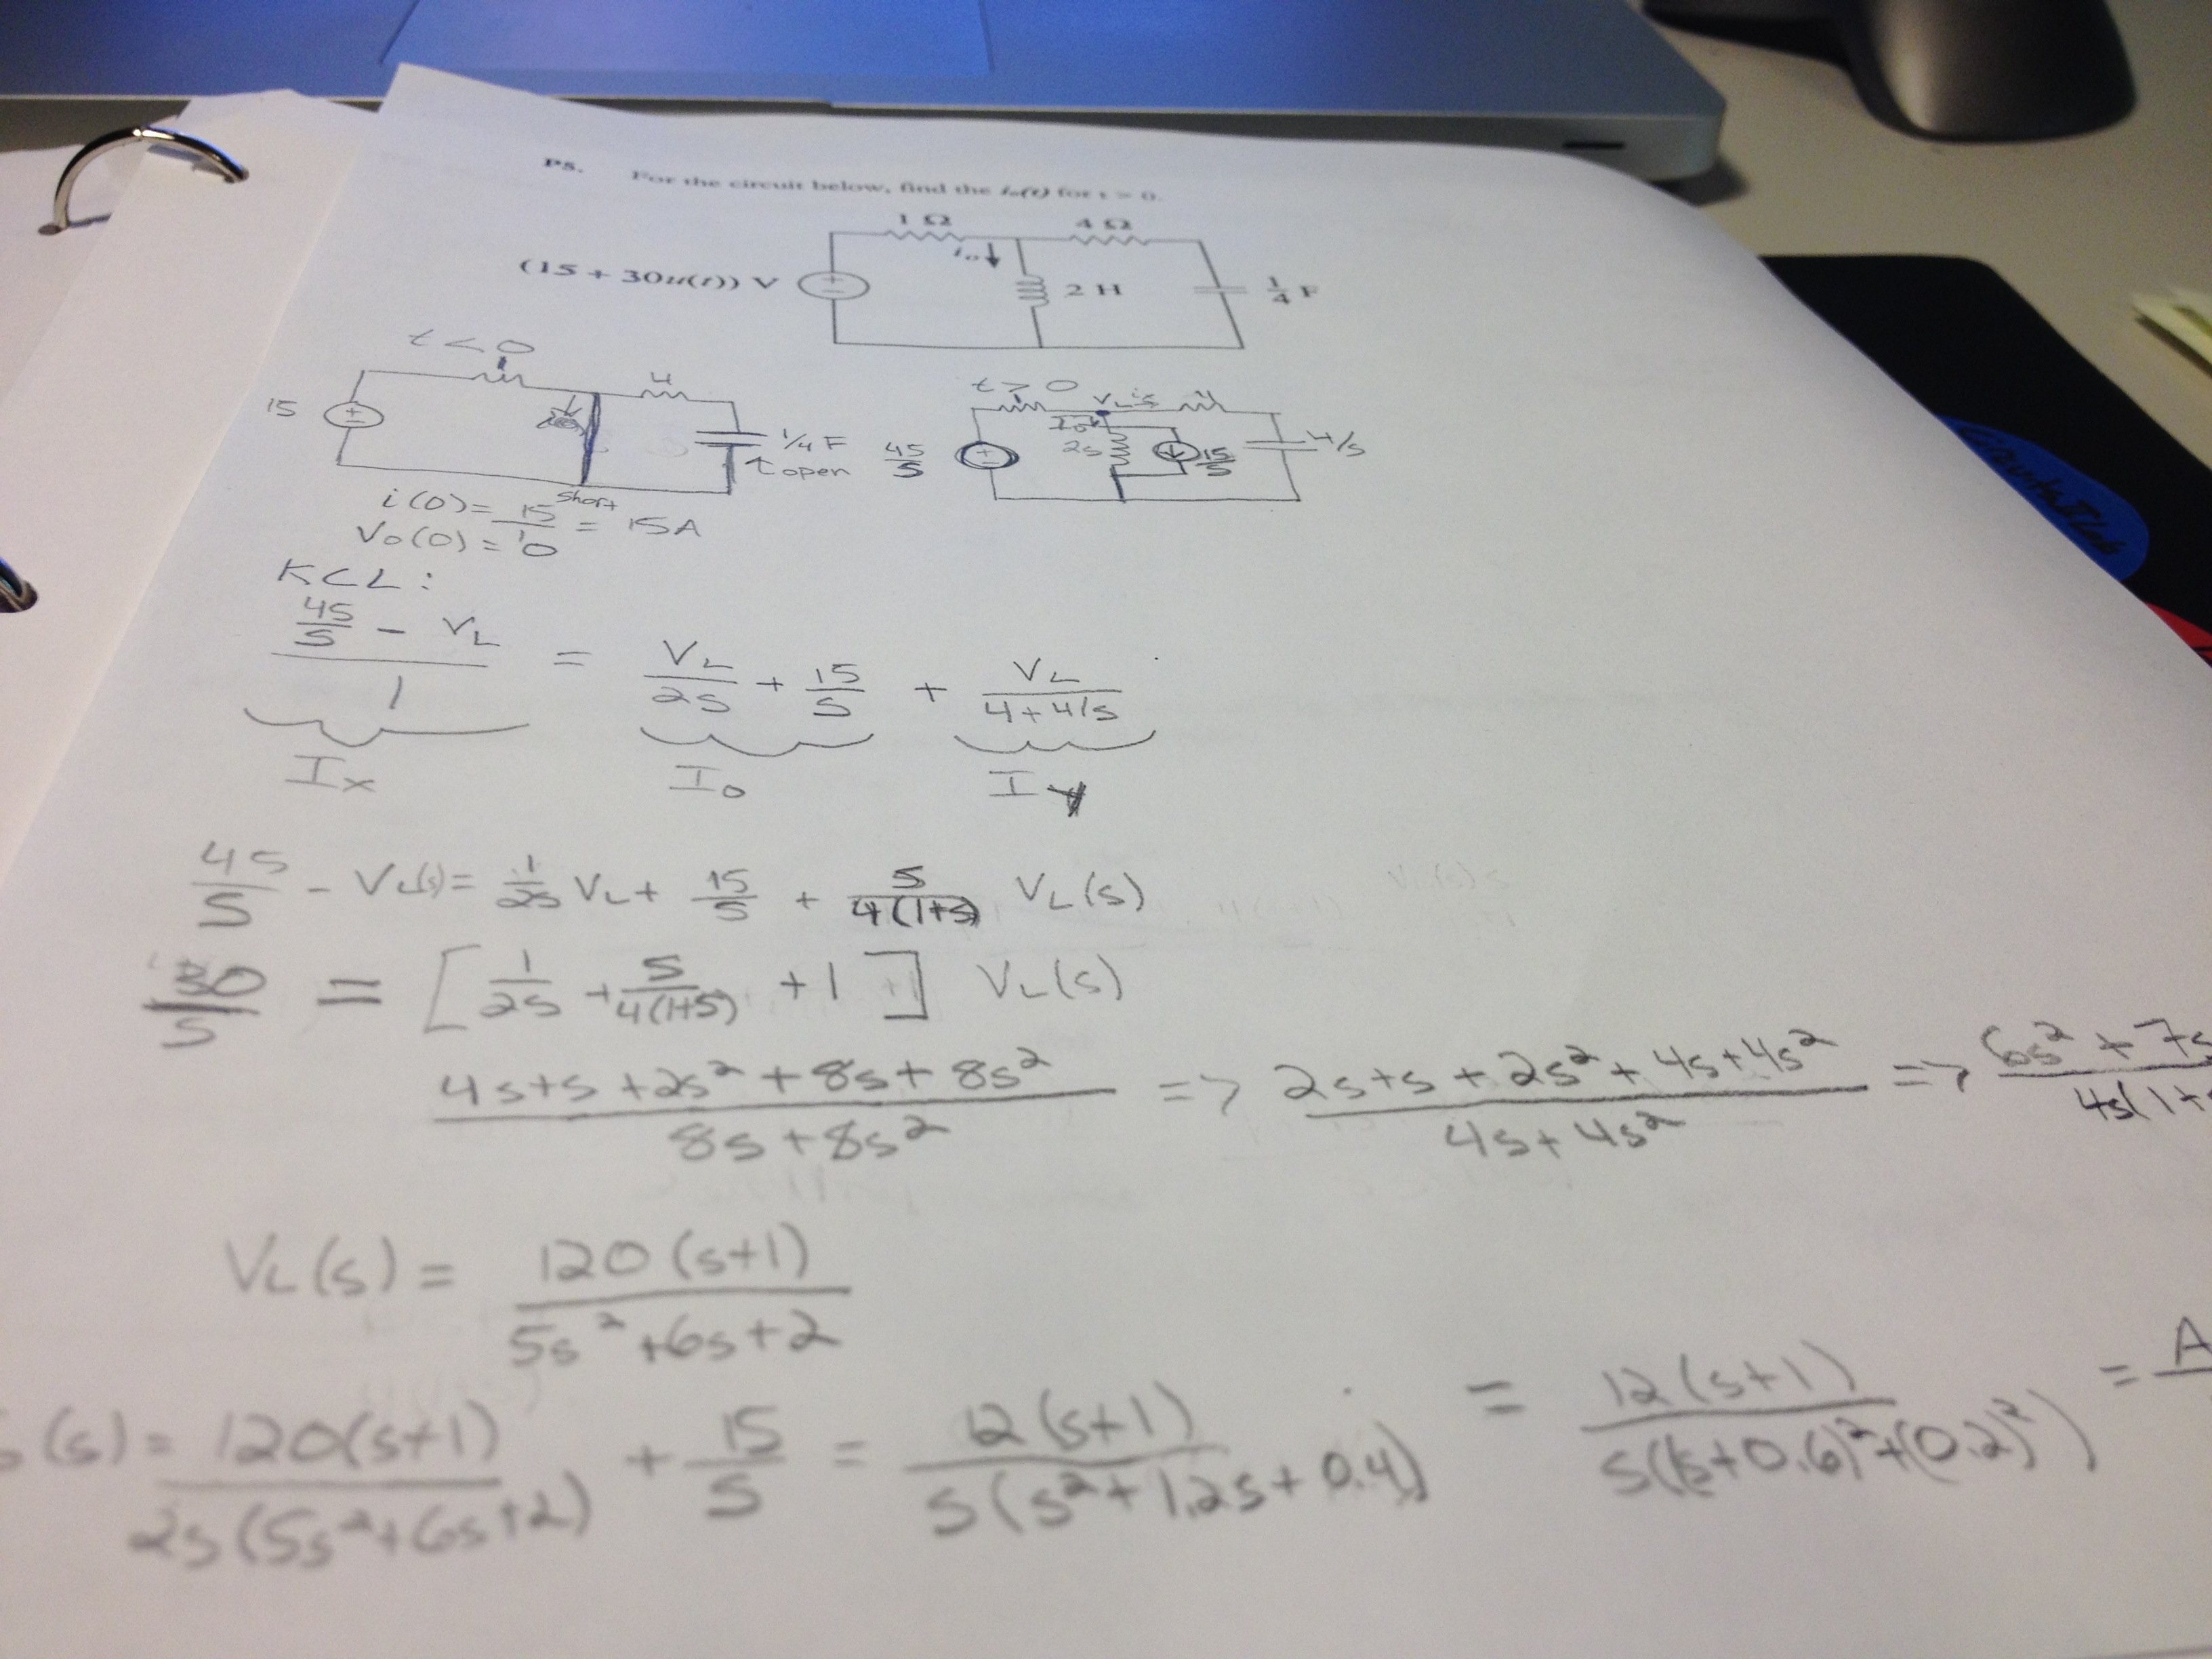 P5. For the circuit below, find the i₀(t) for t > 0.
1 Ω 4 Ω
(15 + 30u(t)) V + − i₀ 2 H 1/4 F
t < 0
15 + − 1 4 1/4 F ↑ open
short
i(0) = 15/1 = 15A
V₀(0) = 0
t > 0
45/s + − 1 V_L I₀ 2s 15/s 4 4/s
KCL:
(45/s − V_L)/1 = V_L/2s + 15/s + V_L/(4+4/s)
I_x I_o I_y
45/s − V_L(s) = 1/2s V_L + 15/s + s/4(1+s) V_L(s)
30/s = [1/2s + s/4(1+s) + 1] V_L(s)
(4s+s+2s²+8s+8s²)/(8s+8s²) => (2s+s+2s²+4s+4s²)/(4s+4s²) => 6s²+7s / 4s(1+s
V_L(s) = 120(s+1)/(5s²+6s+2)
(s) = 120(s+1)/2s(5s²+6s+2) + 15/s = 12(s+1)/s(s²+1.2s+0.4) = 12(s+1)/s((s+0.6)²+(0.2)²) = A